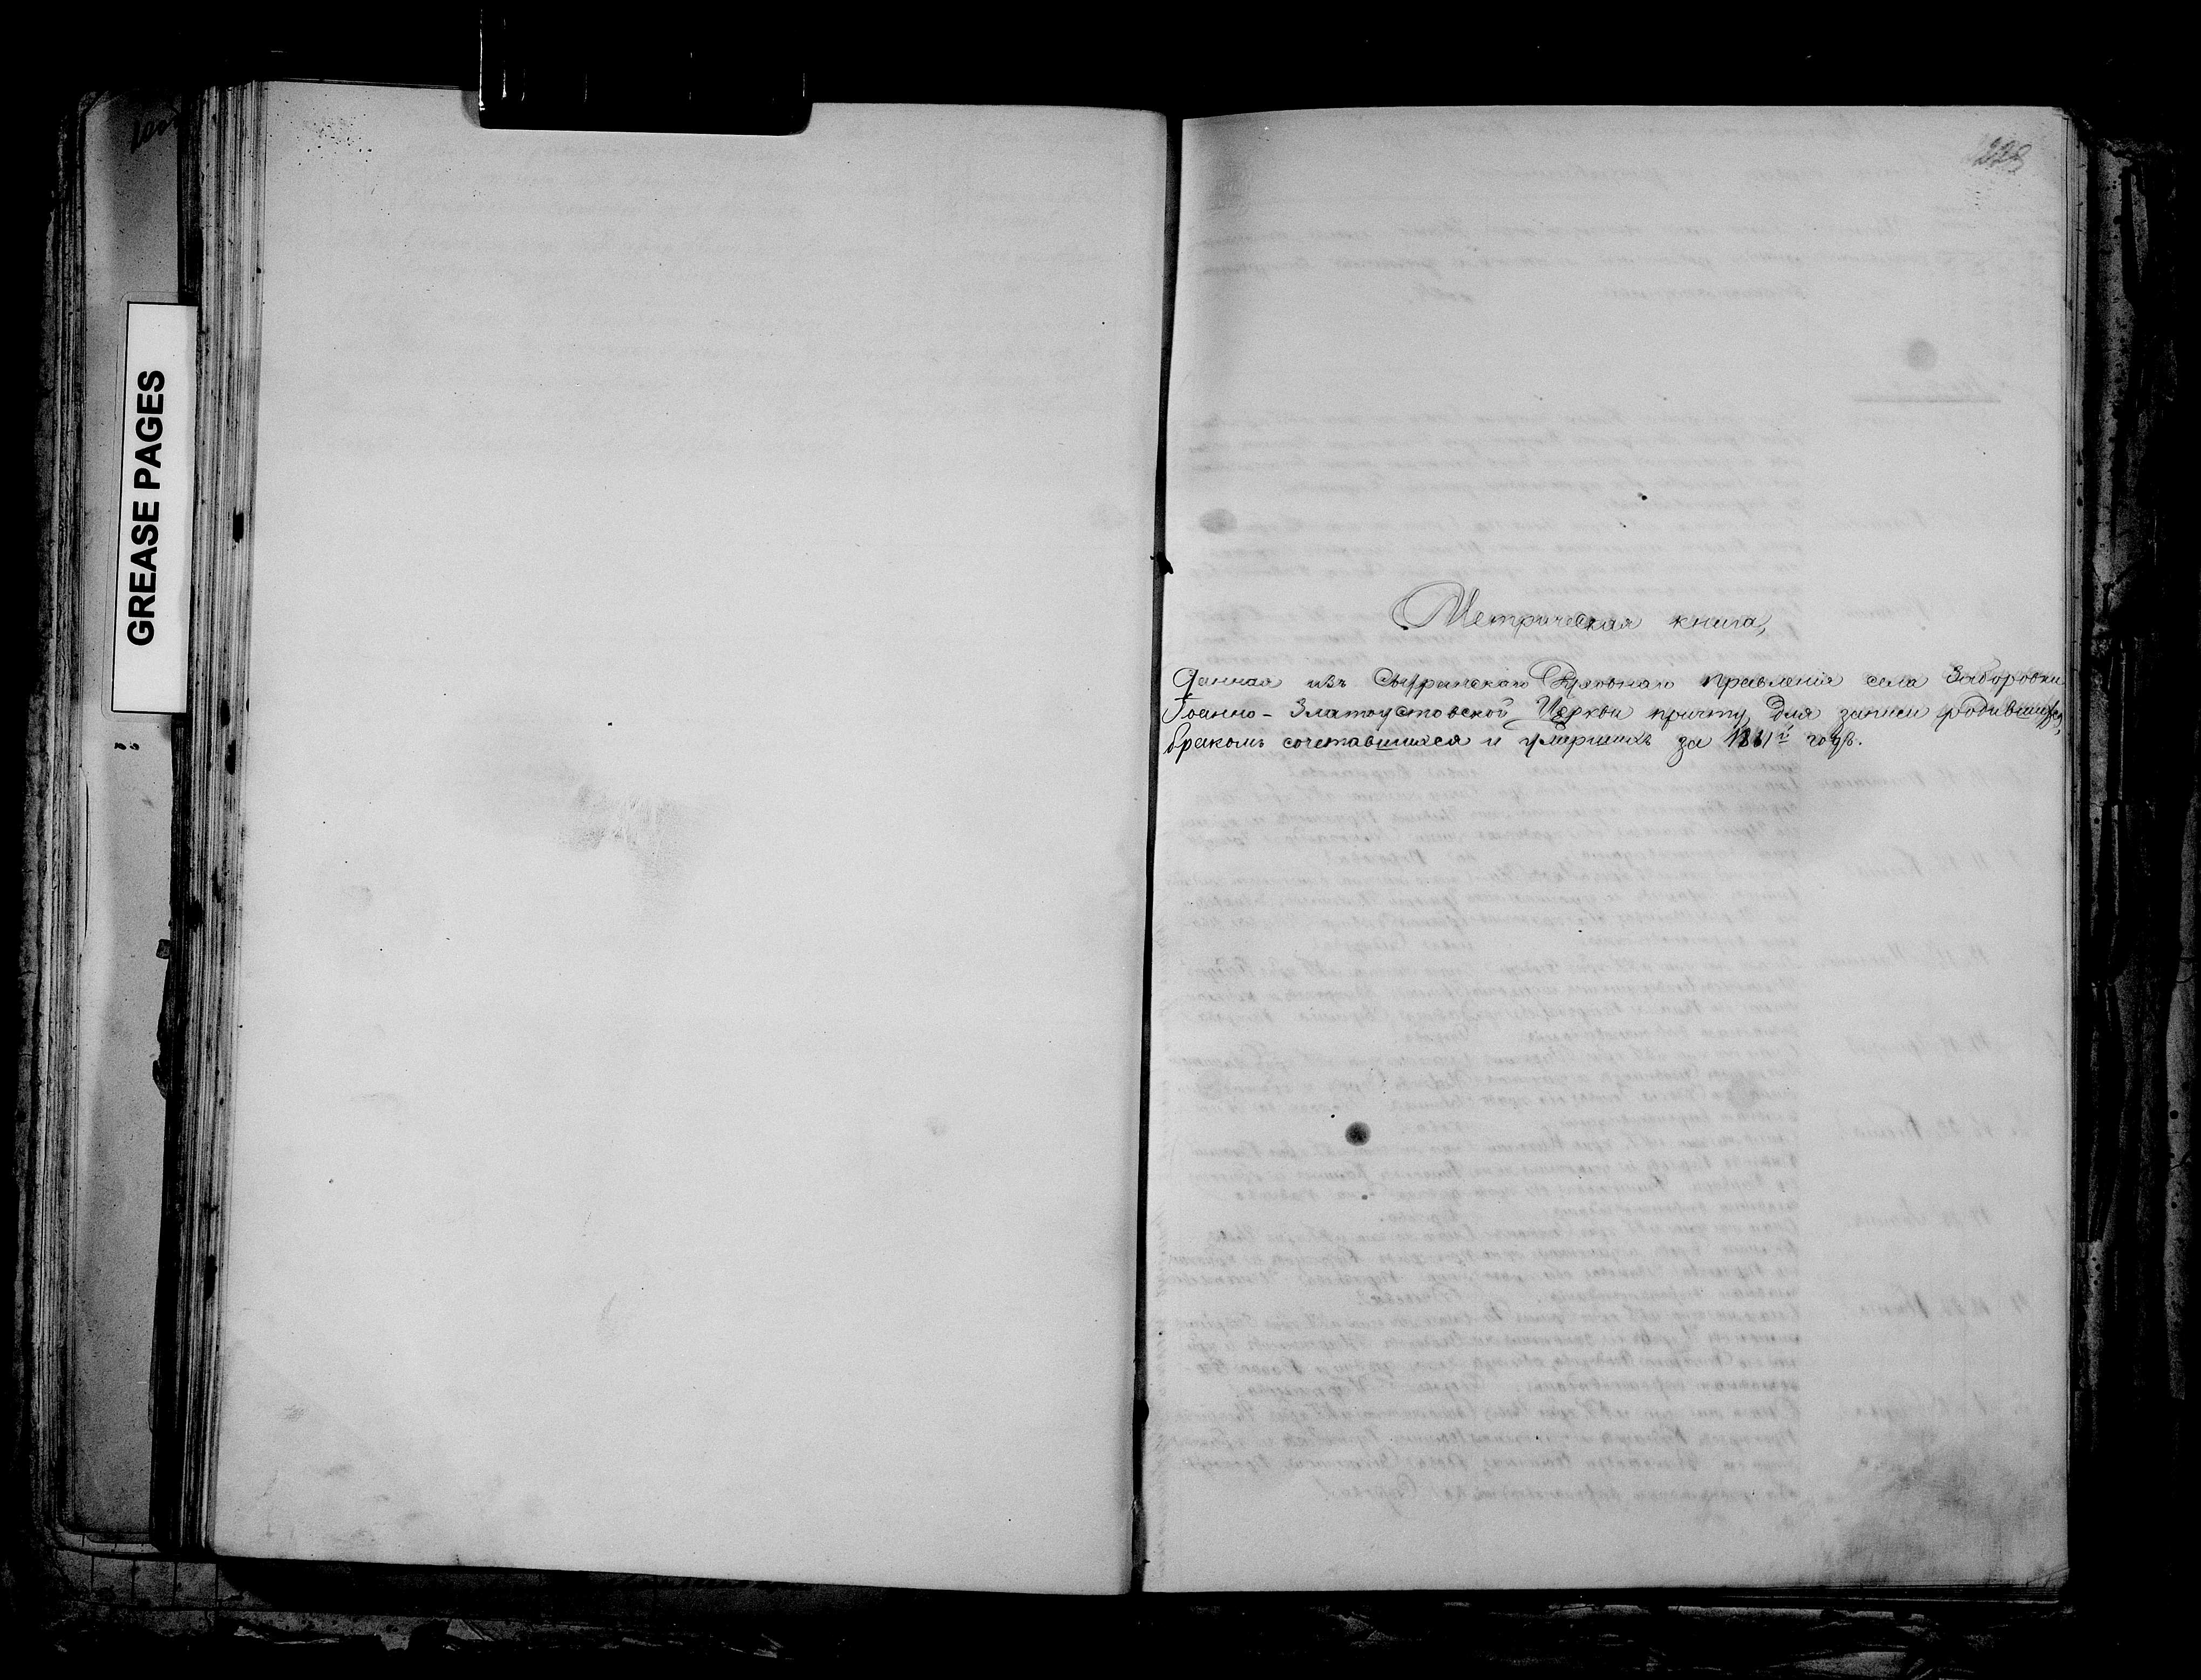 GREASE PAGES
228
Метрическая книга,
Данная изъ Сызранскаго Духовнаго правленія села Заборовки
Іоанно-Златоустовской Церкви причту, для записи родившихся,
бракомъ сочетавшихся и умершихъ за 1861й годъ.